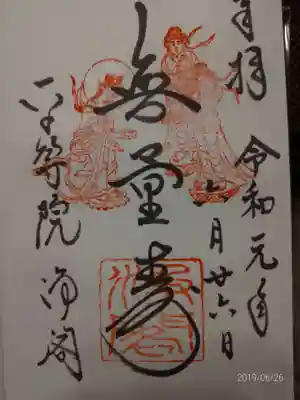 奉拝 令和元年
六月廿六日
無量寿
等院 浄閣
2019/06/26